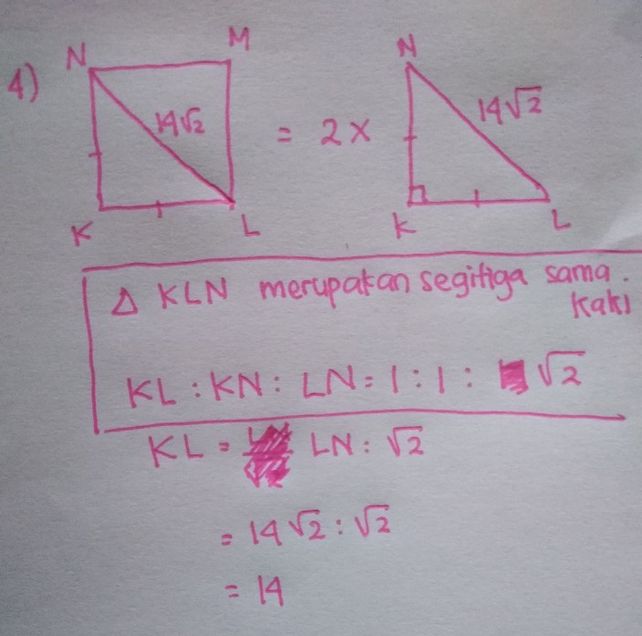 4)
N M
14√2
K L
= 2 ×
N
14√2
K L
Δ KLN merupakan segitiga sama kaki
KL : KN : LN = 1 : 1 : √2
KL = LN : √2
= 14√2 : √2
= 14